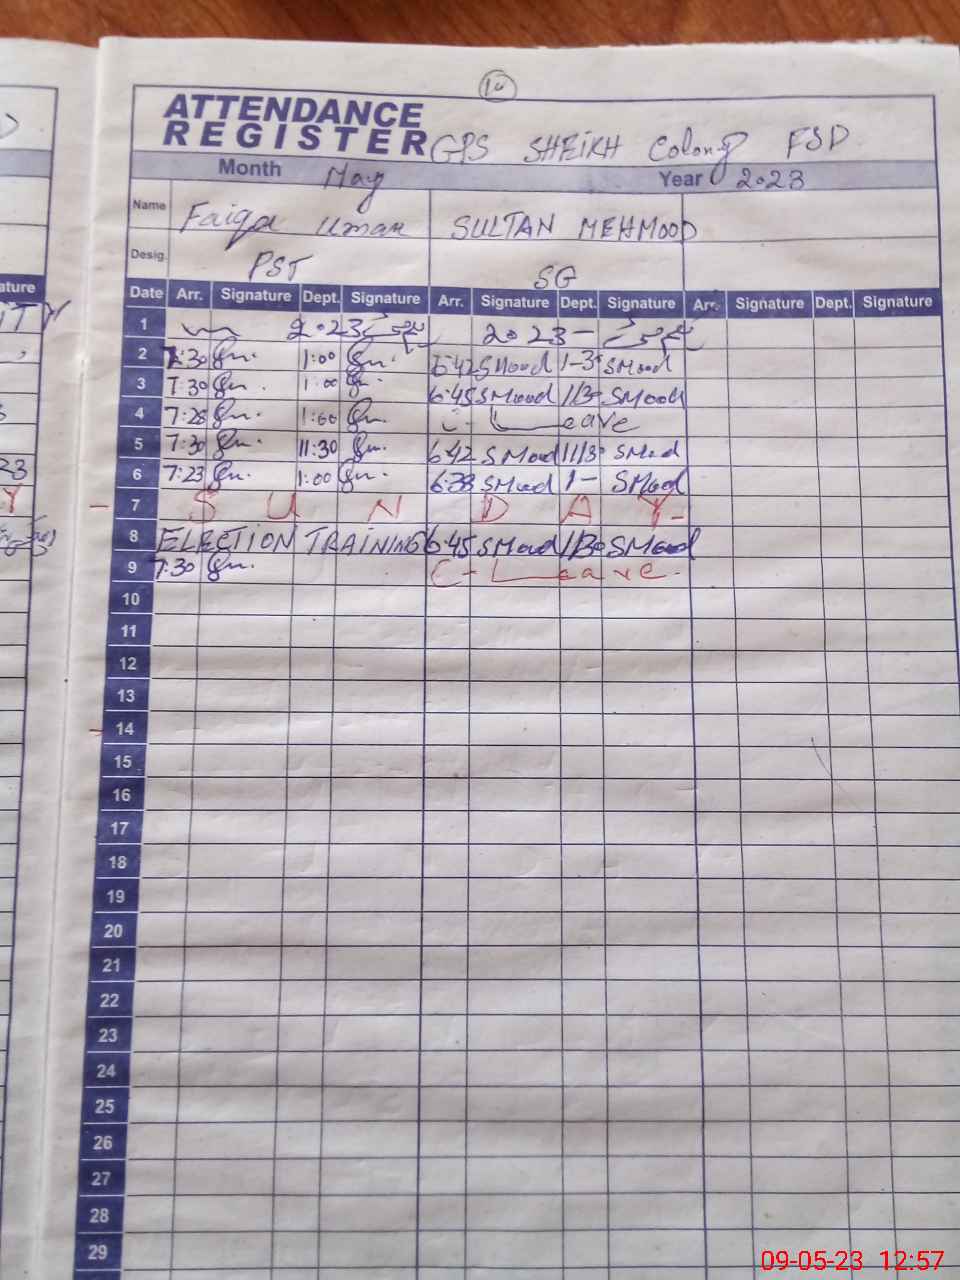 10
ATTENDANCE
REGISTER GPS SHEIKH Colony FSD
Month May Year 2023
Name Faiqa Umar SULTAN MEHMOOD
Desig. PST SG
ature Date Arr. Signature Dept. Signature Arr. Signature Dept. Signature Arr. Signature Dept. Signature
1 2023 2023
2 7:30 1:00 6:42 SMood 1-3 SMood
3 7:30 1:00 6:45 SMood 1/30 SMood
4 7:28 1:00 C- Leave
5 7:30 11:30 6:42 SMood 11/30 SMood
6 7:23 1:00 6:38 SMood 1- SMood
7 - S U N D A Y -
8 ELECTION TRAINING 6:45 SMood 1/30 SMood
9 7:30 C- Leave.
10
11
12
13
14
15
16
17
18
19
20
21
22
23
24
25
26
27
28
29
09-05-23 12:57